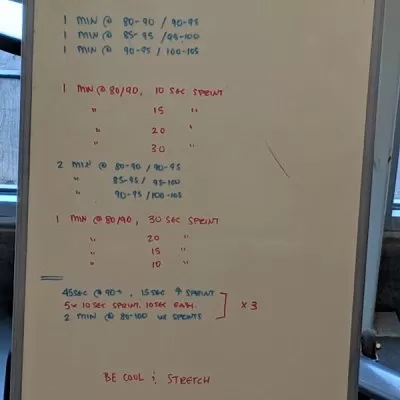 1 MIN @ 80-90 / 90-95
1 MIN @ 85-95 / 95-100
1 MIN @ 90-95 / 100-105
1 MIN @ 80/90, 10 SEC SPRINT
" 15 "
" 20 "
" 30 "
2 MIN @ 80-90 / 90-95
" 85-95 / 95-100
" 90-95 / 100-105
1 MIN @ 80/90, 30 SEC SPRINT
" 20 "
" 15 "
" 10 "
45SEC @ 90+, 15SEC ↑ SPRINT
5x 10SEC SPRINT, 10SEC EASY
2 MIN @ 80-100 SPRINTS
x 3
BE COOL & STRETCH